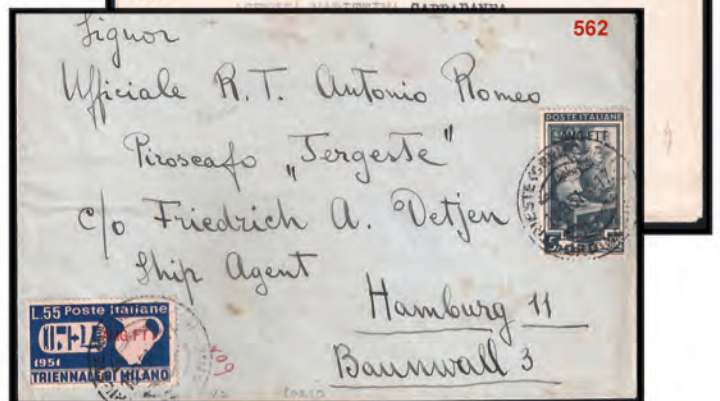 562
Signor
Ufficiale R.T. Antonio Romeo
Piroscafo „Tergeste"
c/o Friedrich A. Detjen
Ship Agent
Hamburg 11
Baumwall 3
POSTE ITALIANE
AMG-FTT
5
L.55 Poste Italiane
AMG-FTT
1951
TRIENNALE DI MILANO